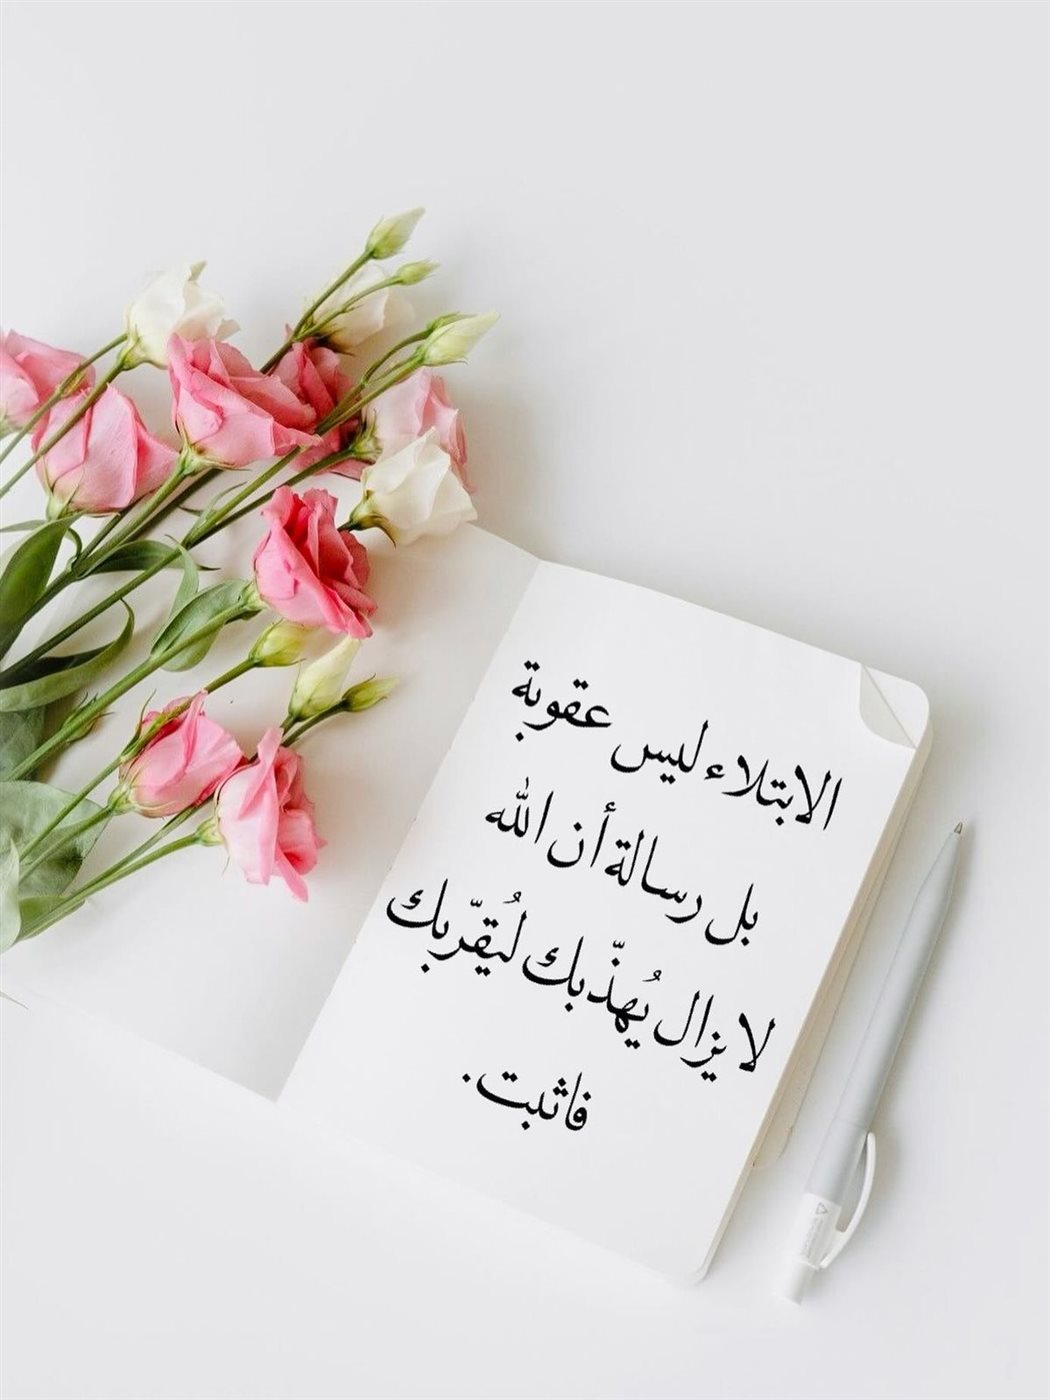 الابتلاء ليس عقوبة
بل رسالة أن الله
لا يزال يُهذّبك ليُقرّبك
فاثبت.